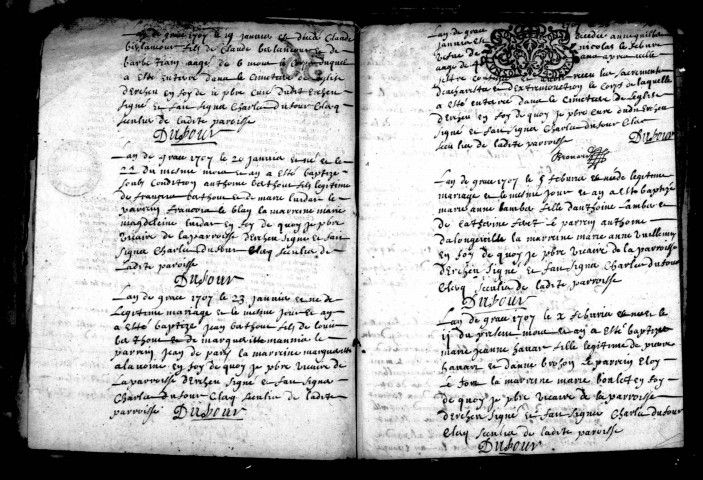 Lan de grace 1707 le 19 janvier est decedé Claude
fils de Claude et de
barbe aagé de 6 mois le corps duquel
a esté enterré dans le Cimetiere de leglise
dercheu en foy de quoy je pbre Curé dudit Ercheu
signé et fait signer Charle Dufour Clerq
seculier de ladite paroisse
Dufour
Lan de grace 1707 le 20 janvier est né et le
22 du mesme mois et an a esté baptizé
soub Condition anthoine bathou fils legitime
de francois bathou et de marie luidar le
parrein francois le blan la marreine marie
magdeleine luidar en foy de quoy je pbre
vicaire de la paroisse dercheu signé et fait
signer Charle Dufour Clerq seculier de
ladite paroisse
Dufour
Lan de grace 1707 le 23 janvier est né de
legitime mariage et le mesme jour et an
a esté baptizé jean bathou fils de louis
bathou et de marguerite le
parrein jean de paris la marreine marguerite
en foy de quoy je pbre vicaire de
la paroisse dercheu signé et fait signer
Charle Dufour Clerq seculier de ladite
paroisse Dufour
Lan de grace
janvier est decedée anne
vefve de nicolas le febure
aagé de
les sacrements
deucharistie et dextremonction le corps de laquelle
a esté enterrée dans le Cimetiere de leglise
dercheu en foy de quoy je pbre Curé dudit Ercheu
signé et fait signer Charle Dufour Clerq
seculier de ladite paroisse Dufour
Lan de grace 1707 le 5 febvrier est née de legitime
mariage et le mesme jour et an a esté baptizé
marie anne lambar fille danthoine lambar et
de Catherine le parrein anthoine
dalongeville la marreine marie anne
en foy de quoy je pbre vicaire de la paroisse
dercheu signé et fait signer Charle Dufour
Clerq seculier de ladite paroisse
Dufour
Lan de grace 1707 le 2 febvrier est née et le
du present mois et an a esté baptizé
marie jeanne hanar fille legitime de pierre
hanar et danne brohon le parrein eloy
le fort la marreine marie boulet en foy
de quoy je pbre vicaire de la paroisse
dercheu signé et fait signer Charle Dufour
Clerq seculier de ladite paroisse
Dufour